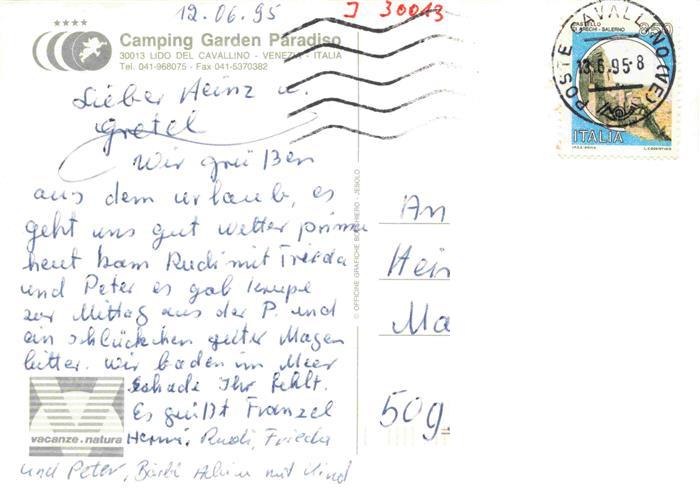 12.06.95
J 30013
Camping Garden Paradiso
30013 LIDO DEL CAVALLINO - VENEZIA - ITALIA
Tel. 041-968075 - Fax 041-5370382
Lieber Heinz u.
Gretel
Wir grüßen
aus dem urlaub, es
geht uns gut wetter prima
heut kam Rudi mit Frieda
und Peter es gab
zur Mittag aus der P. und
ein schlückchen guter Magen
bitter. wir baden im Meer
schade Ihr fehlt.
Es grüßt Franzel
Hermi, Rudi, Frieda
und Peter, Bärbl mit Kind
vacanze natura
© OFFICINE GRAFICHE BORGHIERO - JESOLO
An
Hein
Ma
509
POSTE CAVALLINO (VE)
13.6.95-8
CASTELLO
DI ARECHI - SALERNO
ITALIA